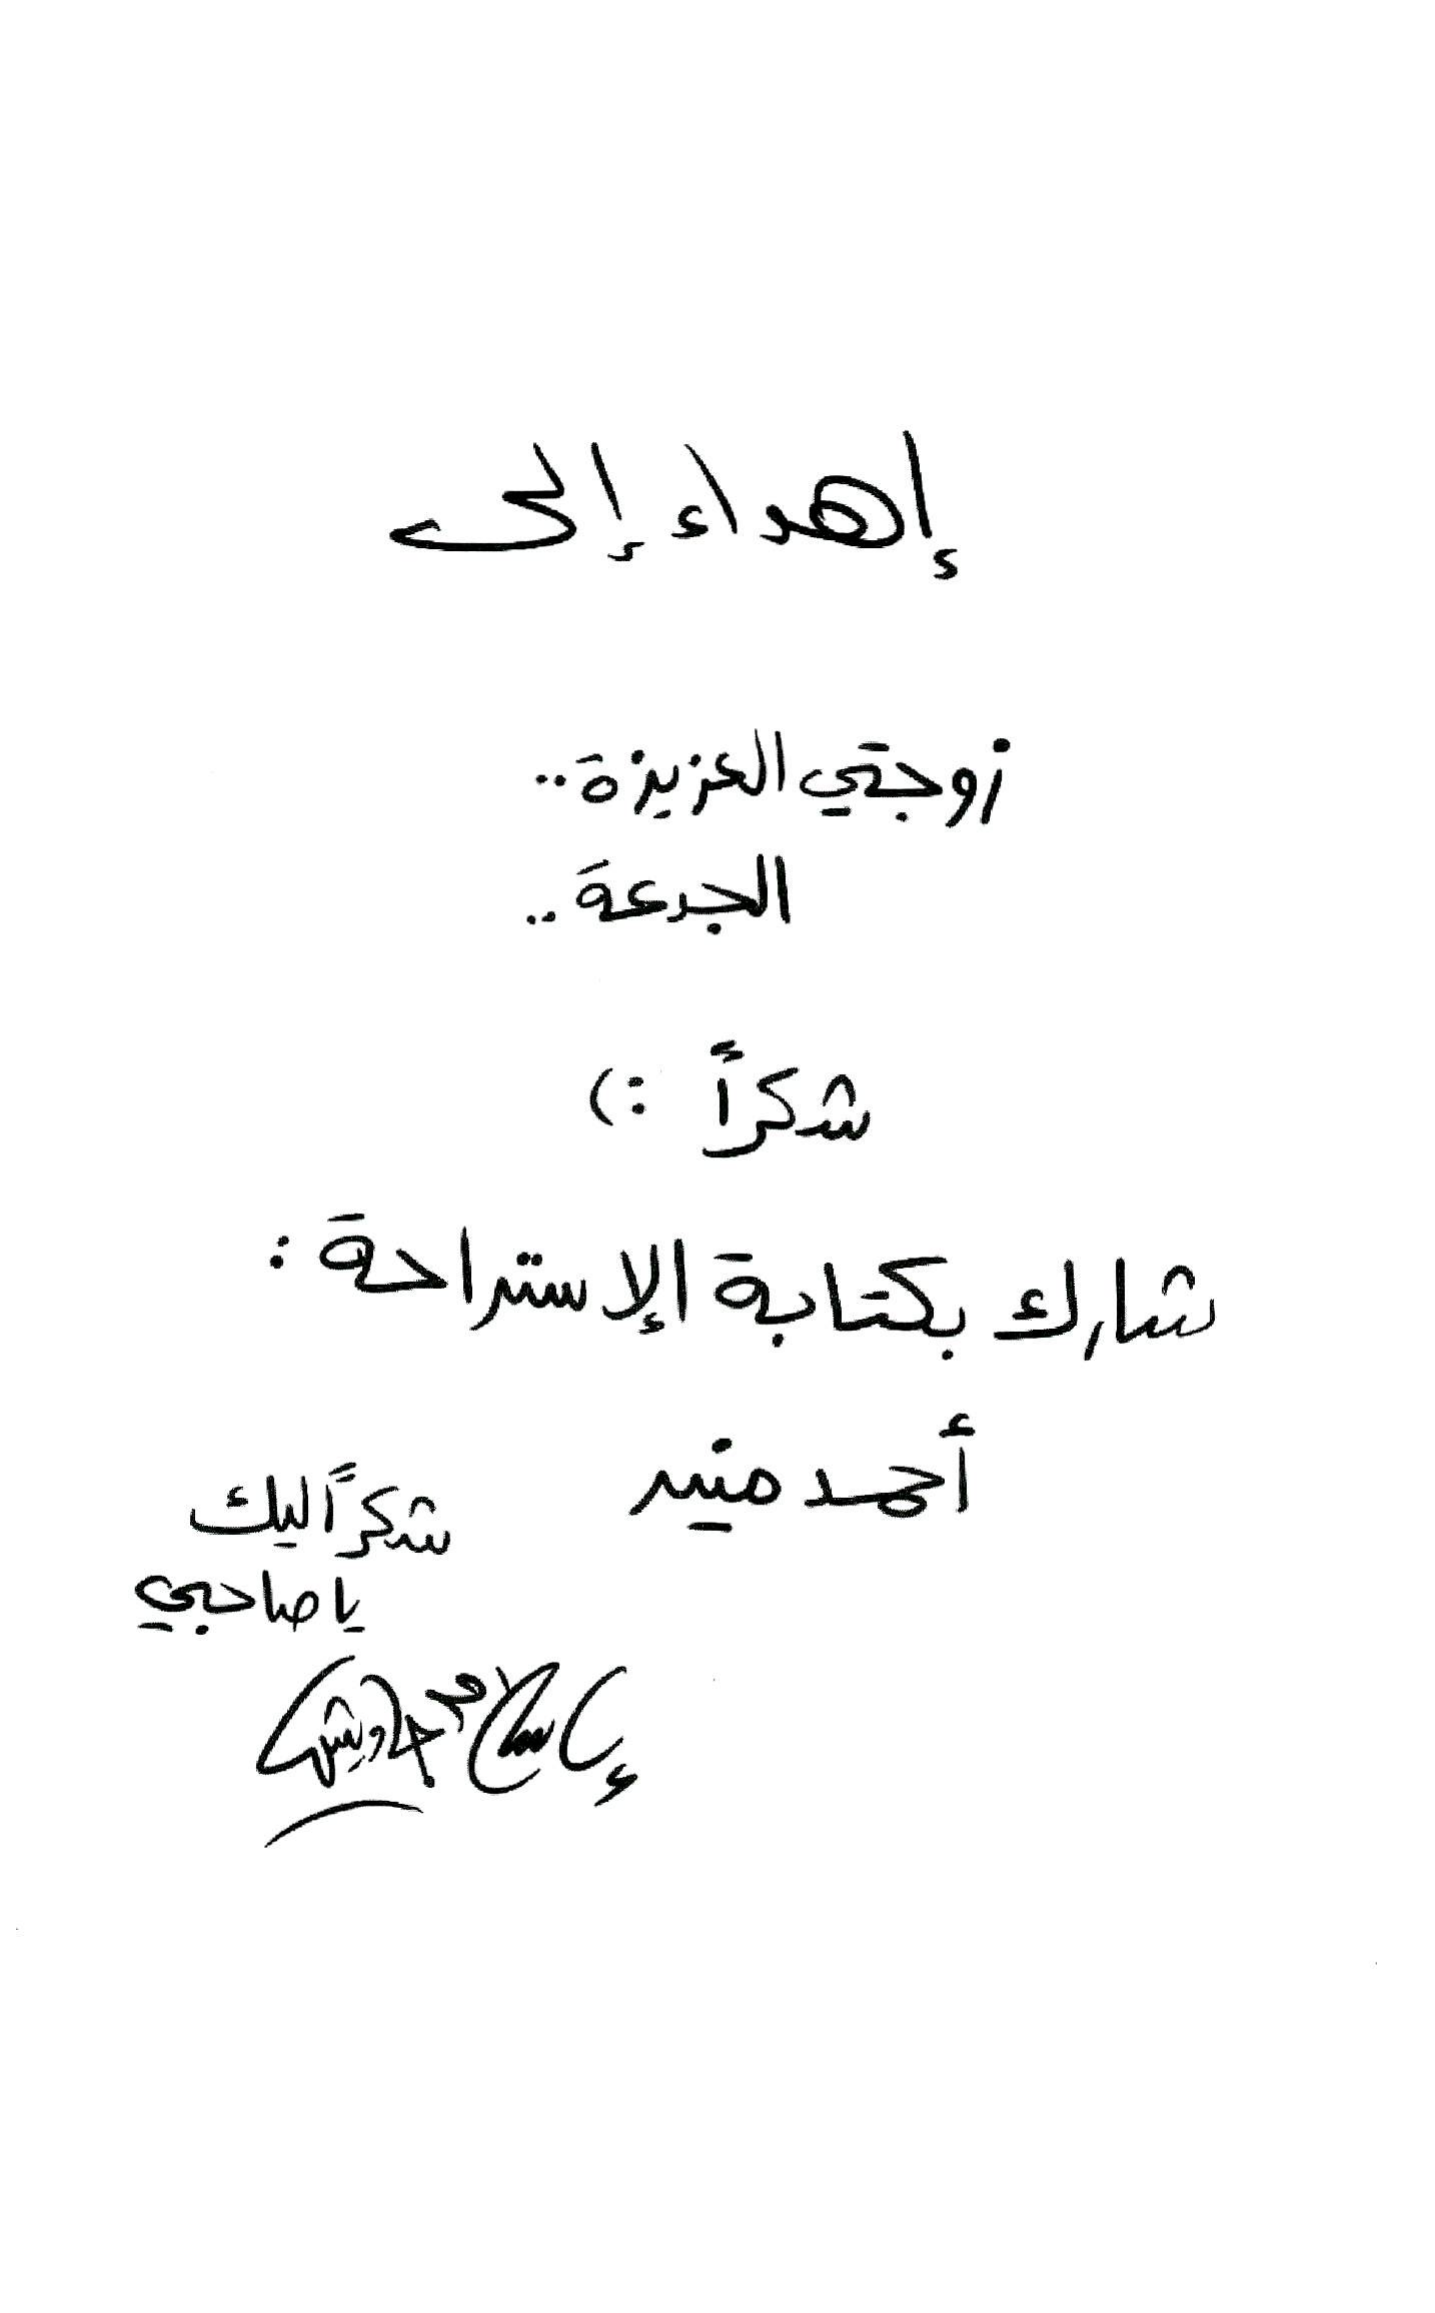 إهداء إلى
زوجتي العزيزة..
الجدعة..
شكراً :)
شارك بكتابة الإستراحة :
أحمد منير
شكراً ليك
يا صاحبي
إسلام جاويش